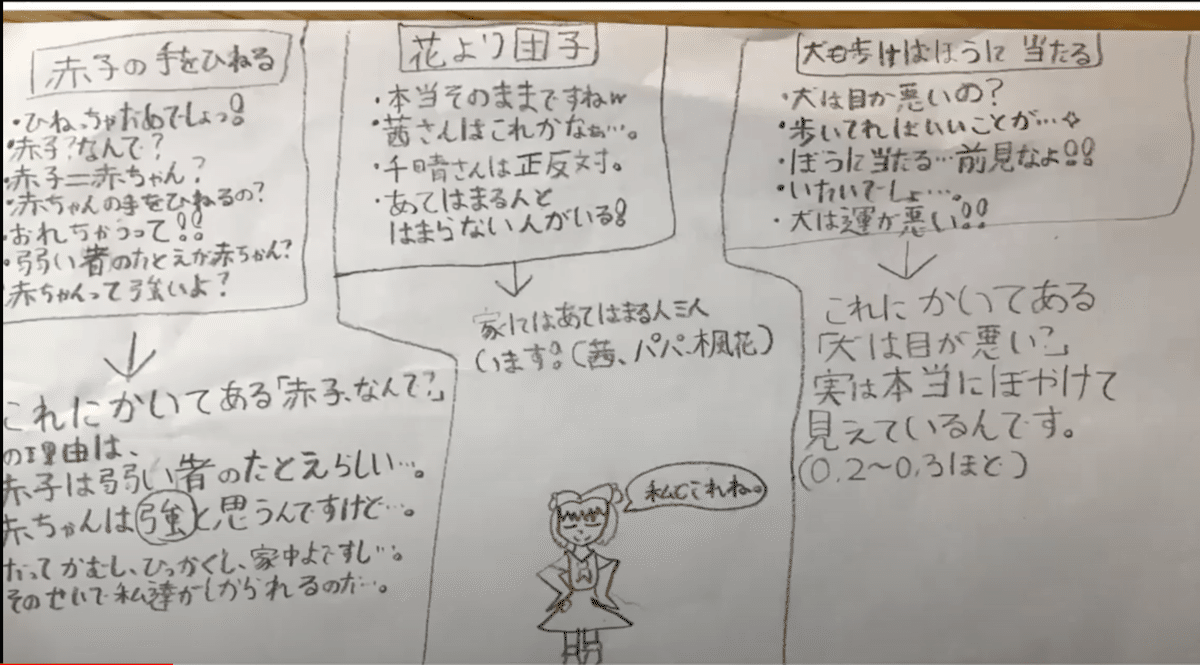 赤子の手をひねる
・ひねっちゃだめでしょっ!
・赤子?なんで?
・赤子=赤ちゃん?
・赤ちゃんの手をひねるの?
・おれちゃうって!!
・弱い者のたとえが赤ちゃん?
赤ちゃんって強いよ?
これにかいてある「赤子、なんで?」
の理由は、
赤子は弱い者のたとえらしい…。
赤ちゃんは強と思うんですけど…。
だってかむし、ひっかくし、家中よですし…。
そのせいで私達がしかられるのだ…。
花より団子
・本当そのままですねw
・茜さんはこれかなぁ…。
・千晴さんは正反対。
・あてはまる人と
はまらない人がいる!
家にはあてはまる人三人
います!(茜、パパ、楓花)
私はこれね。
犬も歩けばぼうに当たる
・犬は目が悪いの?
・歩いてればいいことが…✧
・ぼうに当たる…前見なよ!!
・いたいでしょ…。
・犬は運が悪い!!
これにかいてある
「犬は目が悪い?」
実は本当にぼやけて
見えているんです。
(0.2〜0.3ほど)